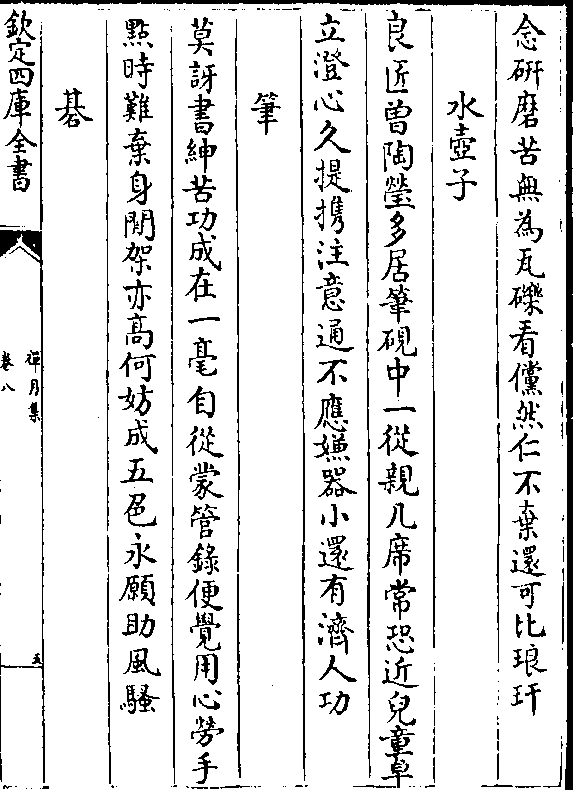 念硏磨苦無為瓦礫看儻然仁不棄還可比琅玕
水壺子
良匠曽陶瑩多居筆硯中一從親几席常恐近兒童卓
立澄心久提携注意通不應嫌器小還有濟人功
筆
莫訝書紳苦功成在一毫自從蒙管錄便覺用心勞手
點時難棄身閒架亦高何妨成五色永願助風騷
棊
欽定四庫全書
禪月集
卷八
五